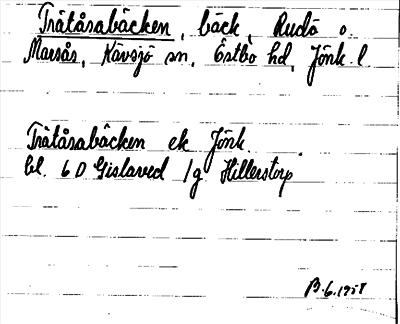 Trätåsabäcken, bäck, Rudö o.
Marsås, Kävsjö sn, Östbo hd, Jönk. l.
Trätåsabäcken ek Jönk.
bl. 6 D Gislaved /g Hillerstorp.
B.6.1958